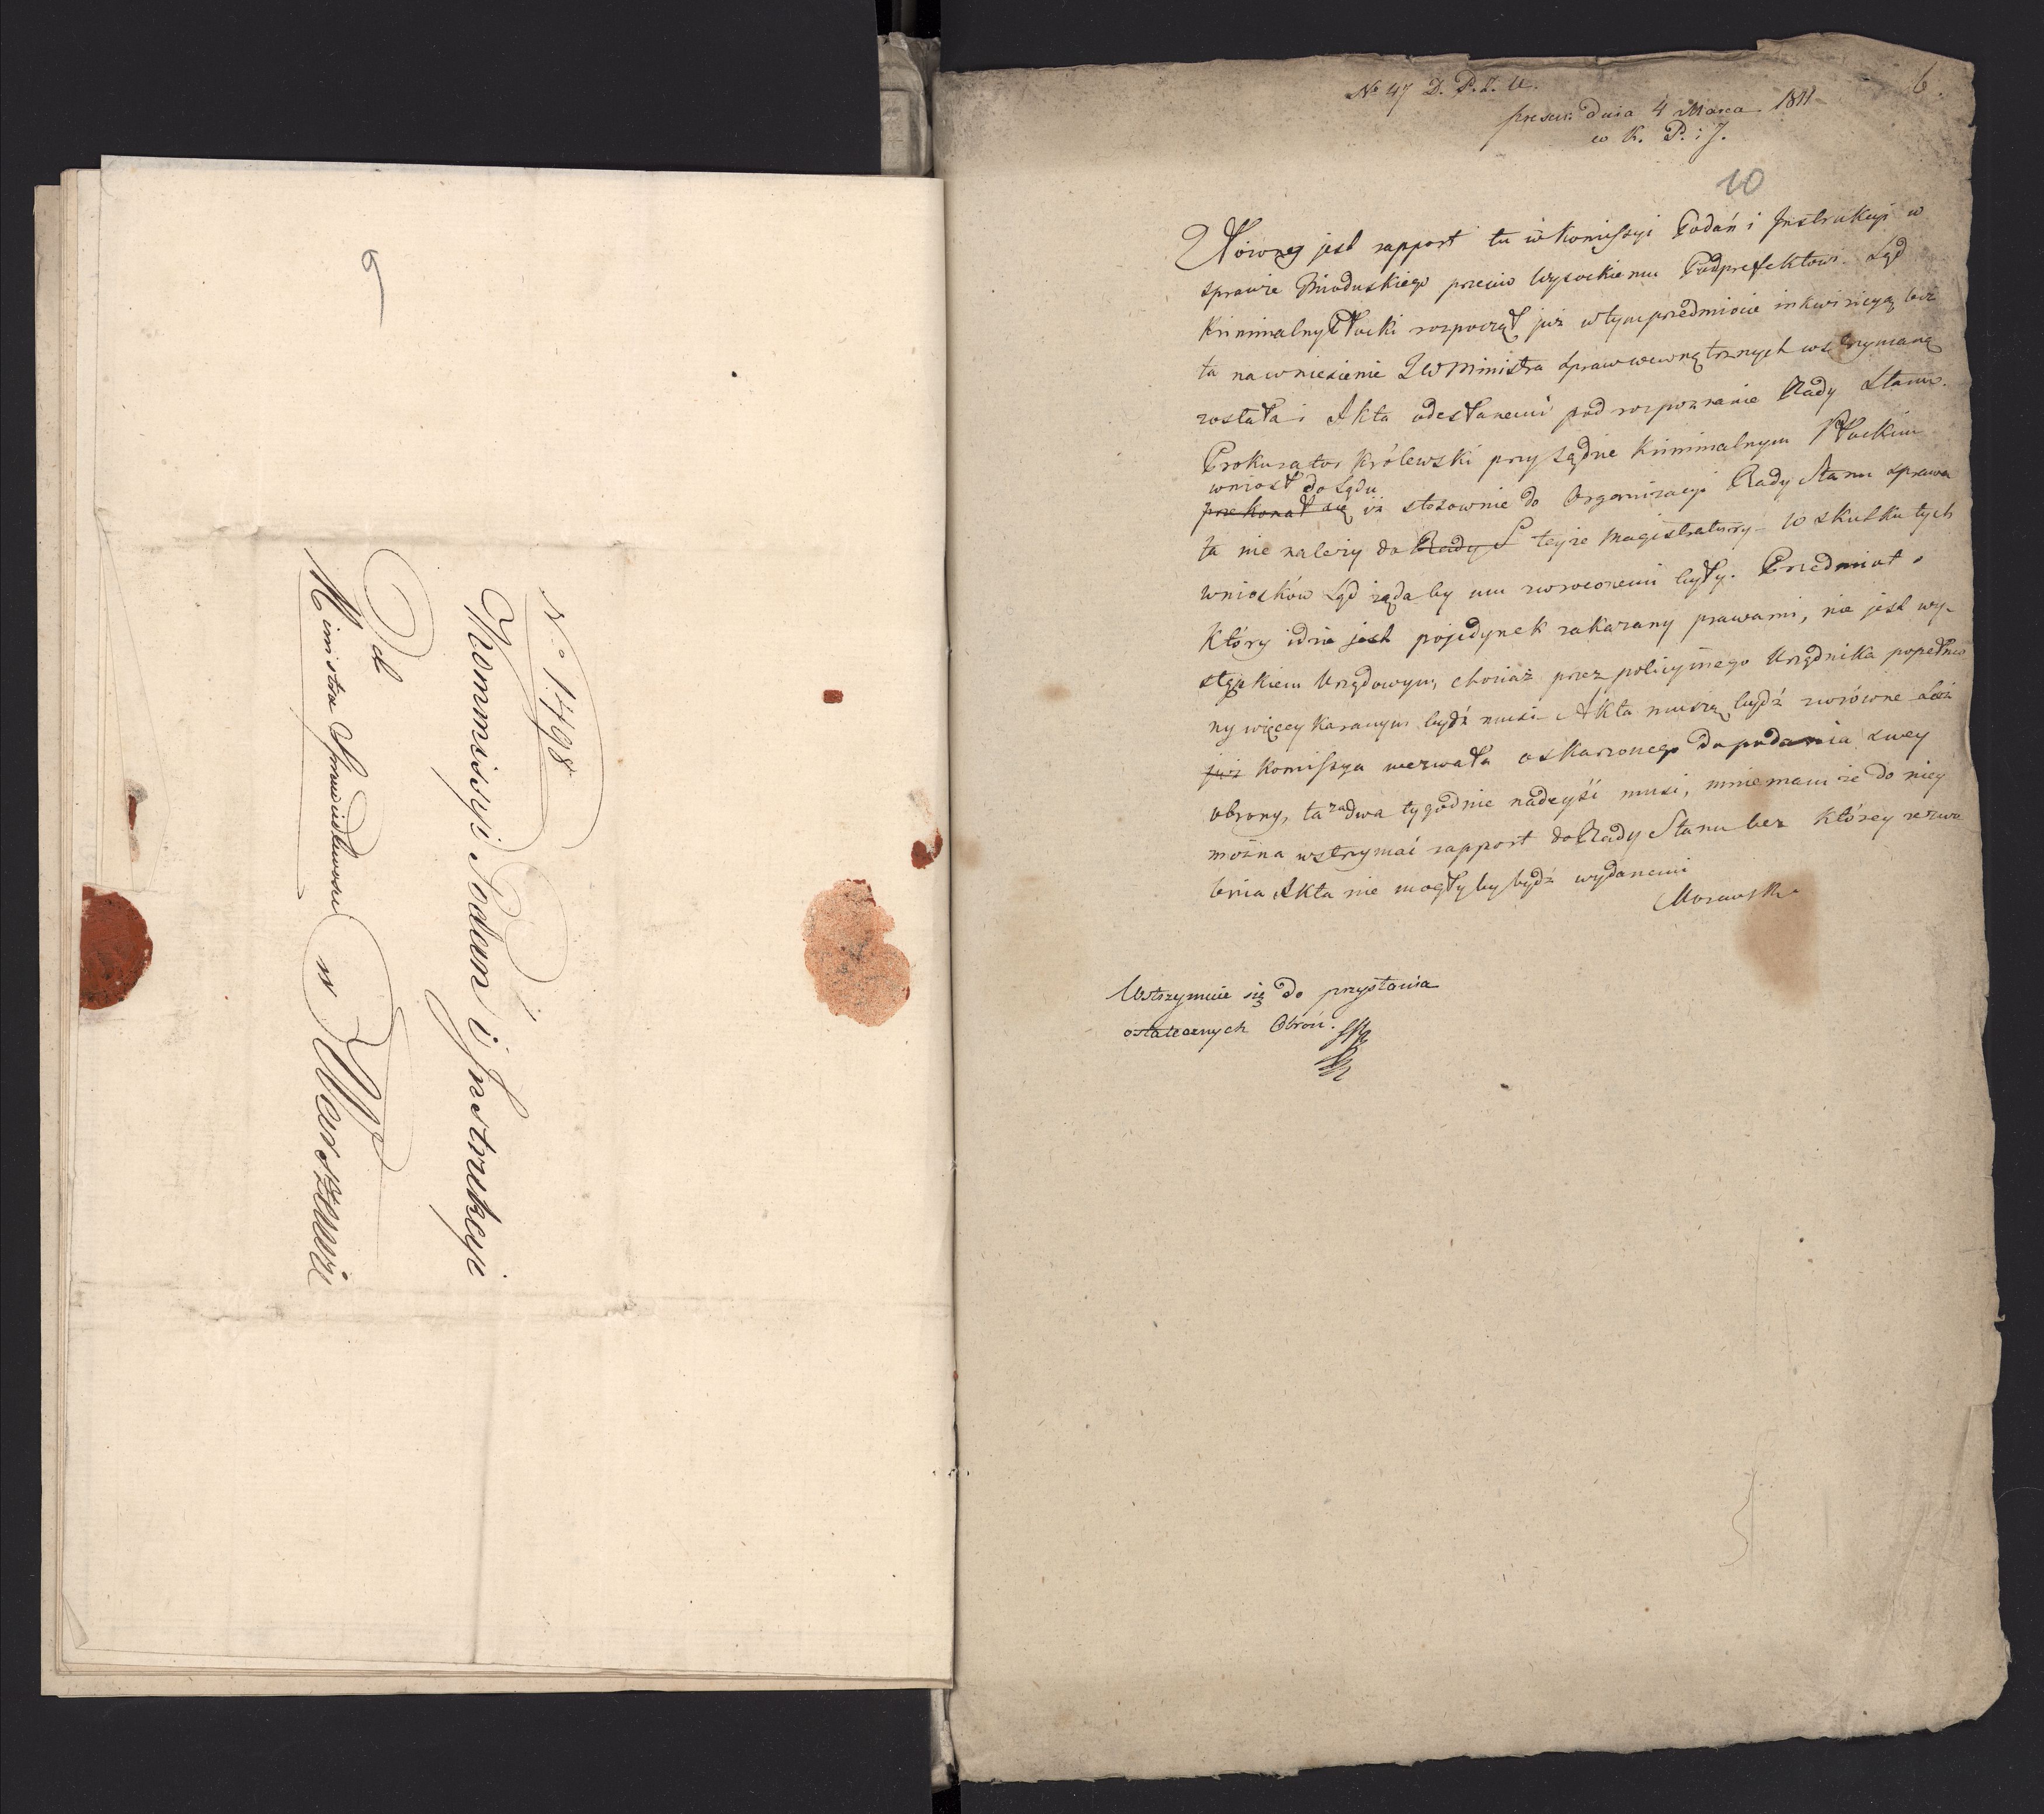 6
No 1798
Kommissyi Podań i Instrukcyi
Od
Ministra Sprawiedliwości w Warszawie
No 47 D. P. i. U.
6.
presen: dnia 4 Marca 1811
w K. P. i J.
10
jest rapport tu w Komissyi Podań i Instrukcyi w
sprawie Mioduskiego przeciw Wysockiemu Podprefektowi. Sąd
Kriminalny Płocki rozpoczął już w tym przedmiocie inkwizicyą lecz
ta na wniesienie JW Ministra Spraw wewnętrznych wstrzymaną
została i Akta odesłanemi pod rozpoznanie Rady Stanu.
Prokurator Królewski przy Sądzie Kriminalnym Płockim
wniosł do Sądu
przekonał się iż stosownie do Organizacyi Rady Stanu sprawa
ta nie należy do Rady S teyże Magistratury - w skutku tych
wniosków Sąd żąda by mu zwroconemi były. Przedmiot o
który idzie jest pojedynek zakazany prawami, nie jest wy-
stępkiem Urzędowym, chociaż przez policyinego Urzędnika popełnio
ny więcey karanym bydź musi - Akta muszą bydź zwrócone Lecz
już Komissya wezwała oskarzonego do podania swey
obrony, ta za dwa tygodnie nadeyść musi, mniemam że do niey
można wstrzymać rapport do Rady Stanu bez którey zezwo
lenia Akta nie mogłyby bydź wydanemi
Morawski
Wstrzymuie się do przysłania
ostatecznych Obron.